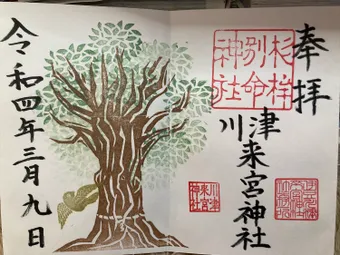 奉拝
杉桙
別命
神社
川津来宮神社
川津
来宮
神社
令和四年三月九日